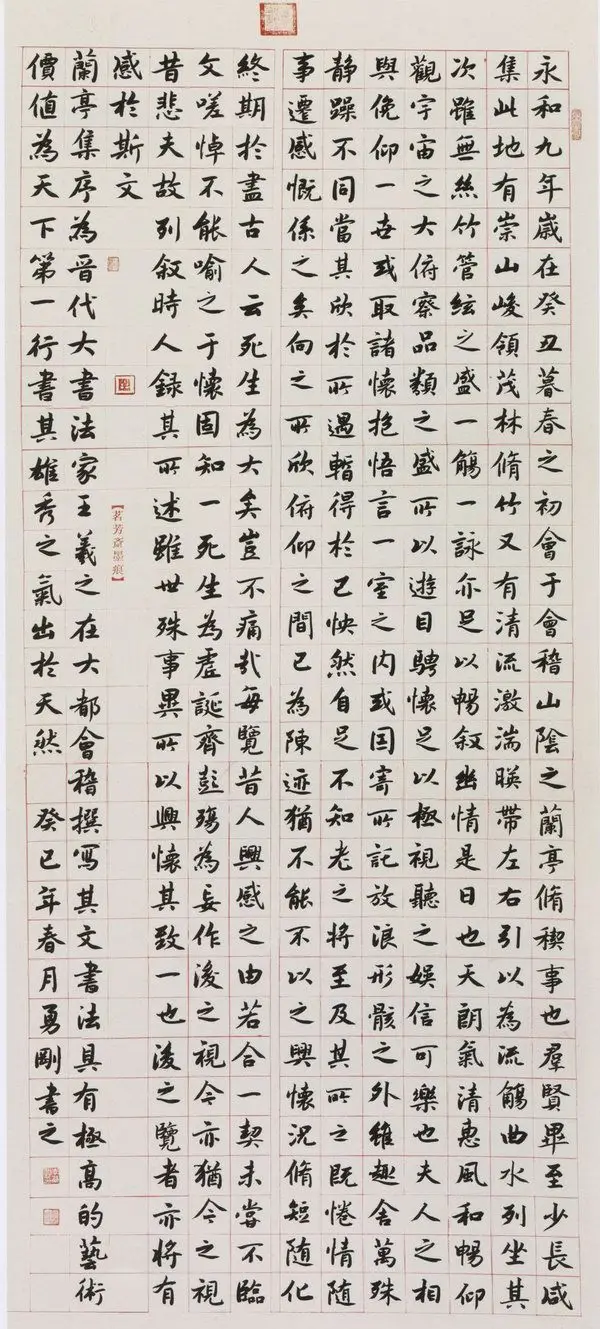 永和九年歲在癸丑暮春之初會于會稽山陰之蘭亭脩禊事也羣賢畢至少長咸
集此地有崇山峻領茂林脩竹又有清流激湍暎帶左右引以為流觴曲水列坐其
次雖無絲竹管絃之盛一觴一詠亦足以暢叙幽情是日也天朗氣清惠風和暢仰
觀宇宙之大俯察品類之盛所以遊目騁懷足以極視聽之娛信可樂也夫人之相
與俛仰一世或取諸懷抱悟言一室之內或因寄所託放浪形骸之外雖趣舍萬殊
静躁不同當其欣於所遇暫得於己怏然自足不知老之將至及其所之既惓情隨
事遷感慨係之矣向之所欣俯仰之間已為陳迹猶不能不以之興懷況脩短隨化
終期於盡古人云死生為大矣豈不痛哉每覽昔人興感之由若合一契未嘗不臨
文嗟悼不能喻之于懷固知一死生為虛誕齊彭殤為妄作後之視今亦猶今之視
昔悲夫故列叙時人録其所述雖世殊事異所以興懷其致一也後之覽者亦將有
感於斯文
【茗芳斎墨痕】
蘭亭集序為晉代大書法家王羲之在大都會稽撰寫其文書法具有極高的藝術
價值為天下第一行書其雄秀之氣出於天然 癸巳年春月勇剛書之